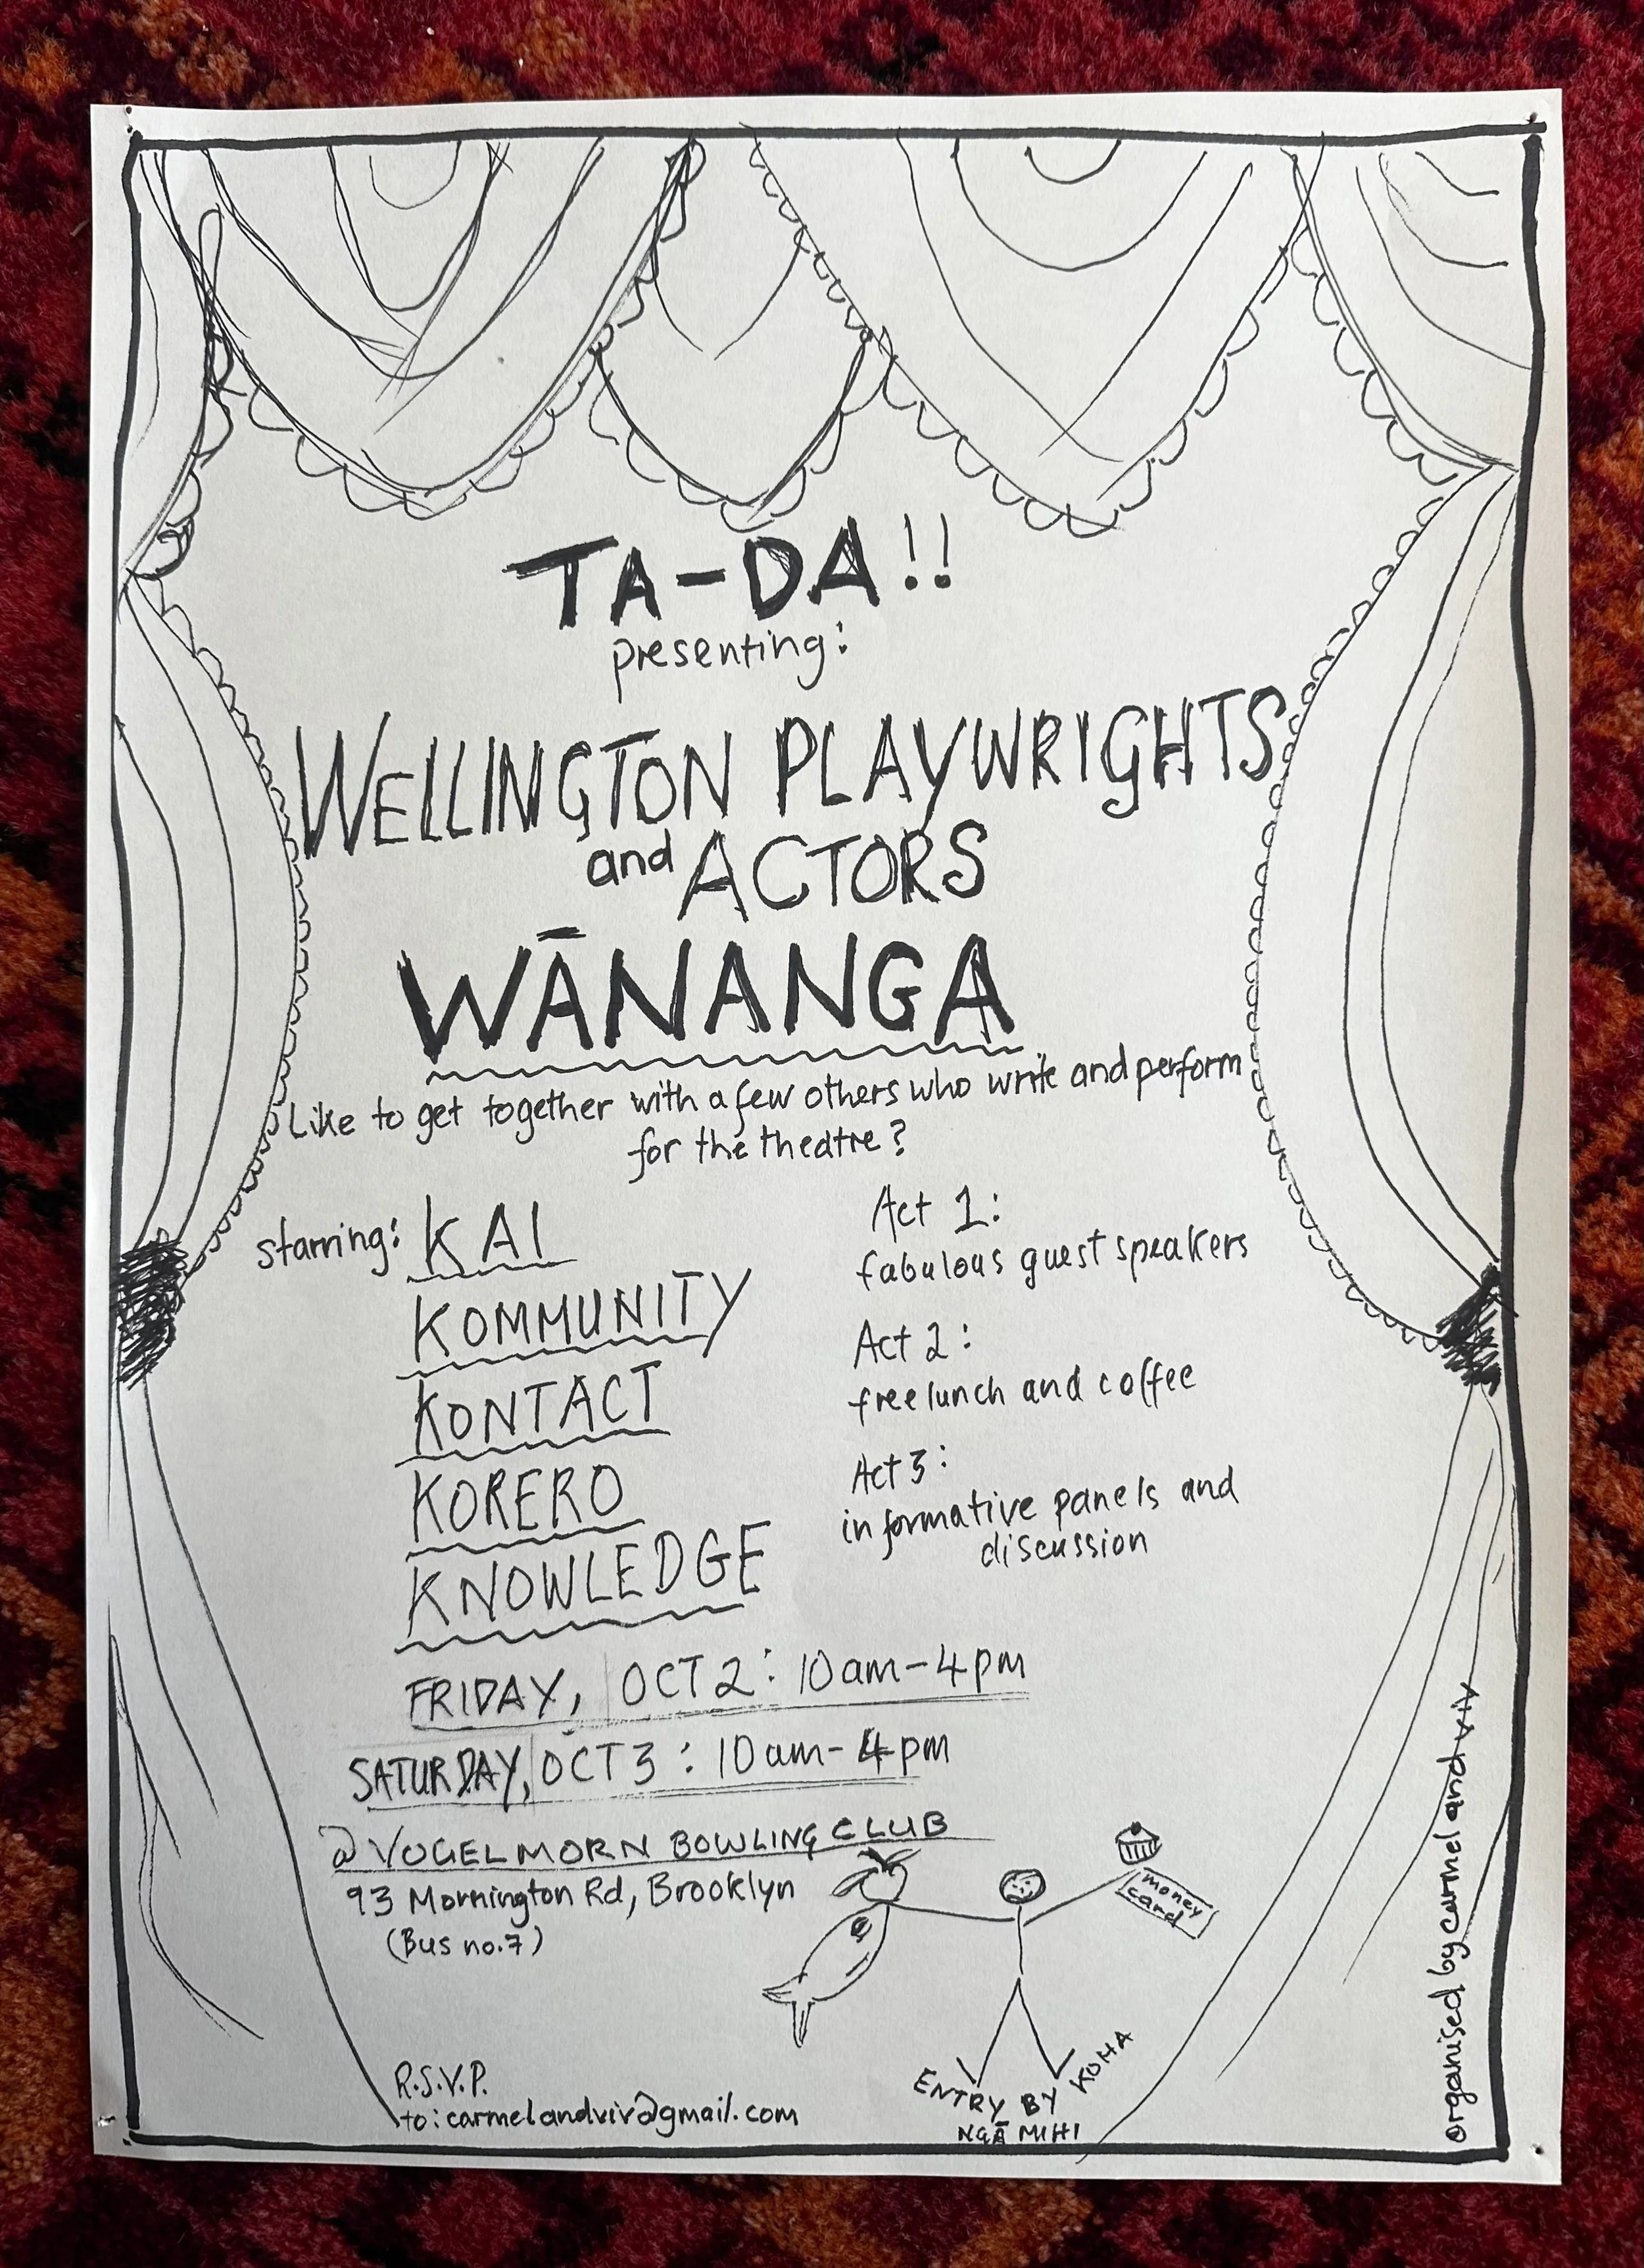 TA-DA!!
presenting:
WELLINGTON PLAYWRIGHTS
and ACTORS
WĀNANGA
Like to get together with a few others who write and perform
for the theatre?
starring: KAI
KOMMUNITY
KONTACT
KORERO
KNOWLEDGE
Act 1:
fabulous guest speakers
Act 2:
free lunch and coffee
Act 3:
informative panels and
discussion
FRIDAY, OCT 2: 10am-4pm
SATURDAY, OCT 3: 10am-4pm
@ VOGELMORN BOWLING CLUB
93 Mornington Rd, Brooklyn
(Bus no.7)
money
card
R.S.V.P.
to: carmelandviv@gmail.com
ENTRY BY KOHA
NGĀ MIHI
organised by carmel and viv